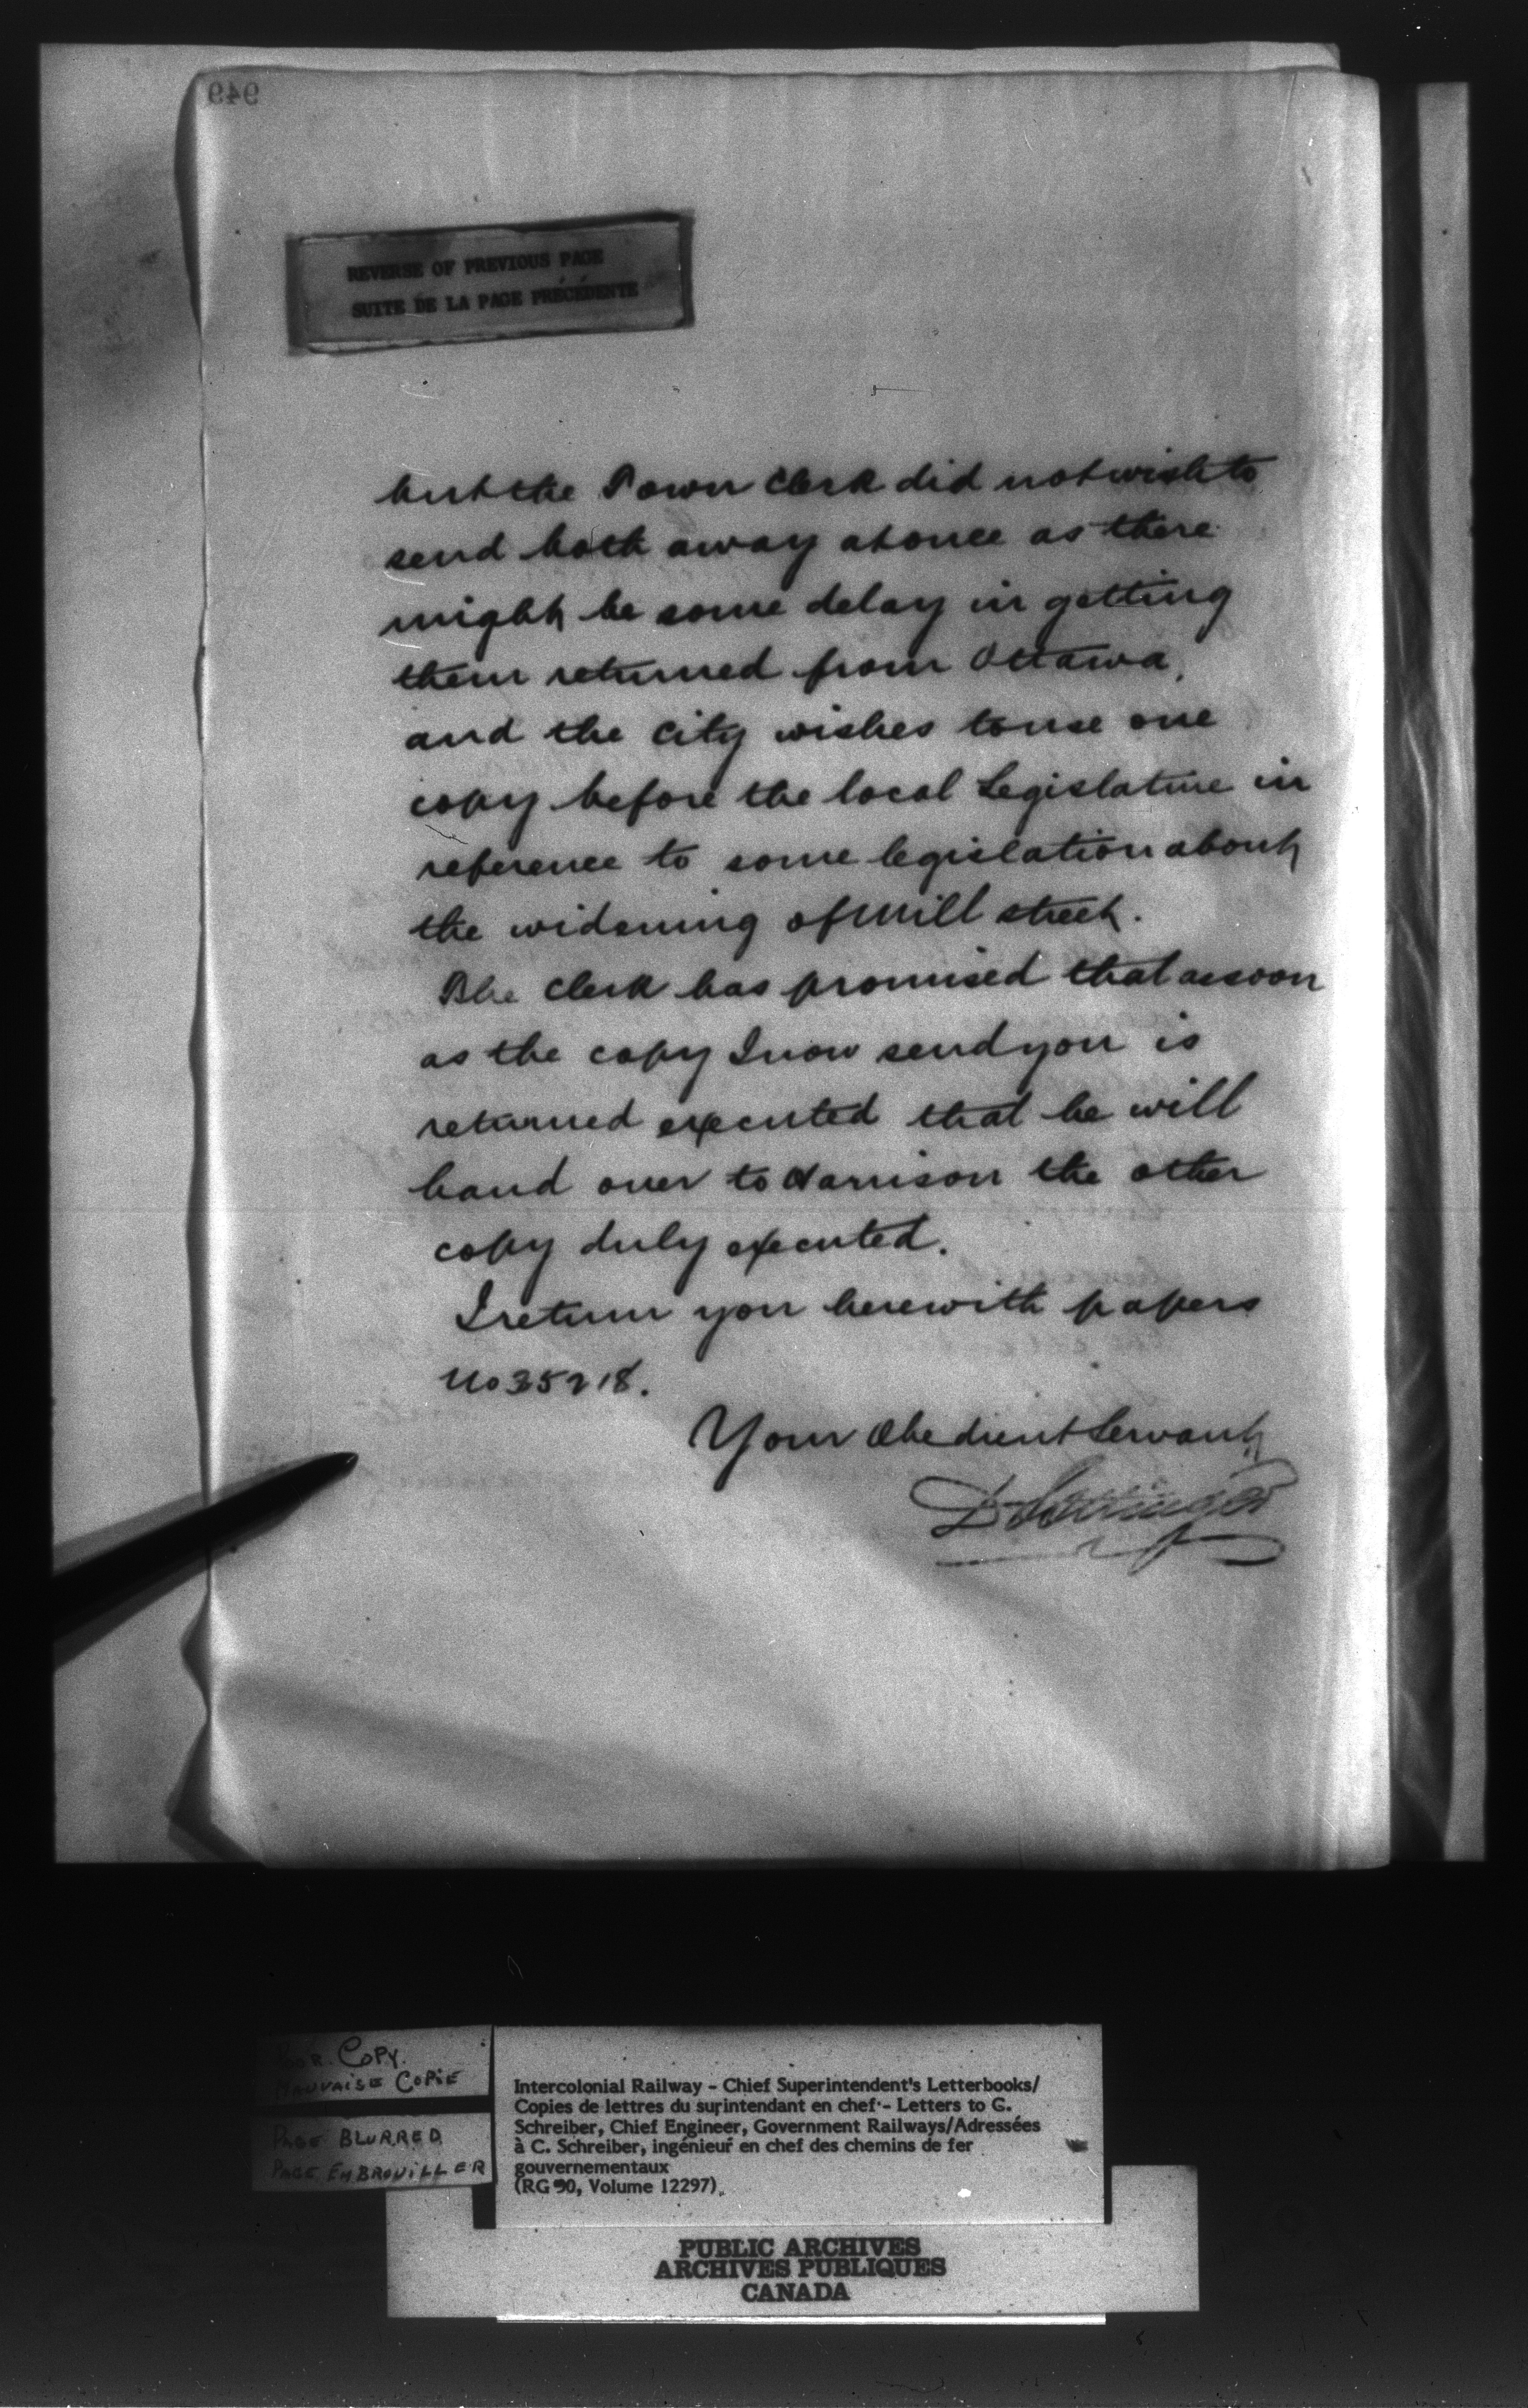 949
REVERSE OF PREVIOUS PAGE
SUITE DE LA PAGE PRÉCÉDENTE
but the Town Clerk did not wish to
send both away at once as there
might be some delay in getting
them returned from Ottawa,
and the City wishes to use one
copy before the local Legislature in
reference to some legislation about
the widening of Mill street.
The Clerk has promised that as soon
as the copy I now send you is
returned executed that he will
hand over to Harrison the other
copy duly executed.
I return you herewith papers
No 35218.
Your Obedient Servant,
D Pottinger
POOR COPY.
MAUVAISE COPIE
PAGE BLURRED
PAGE EMBROUILLER
Intercolonial Railway - Chief Superintendent's Letterbooks/
Copies de lettres du surintendant en chef - Letters to G.
Schreiber, Chief Engineer, Government Railways/Adressées
à C. Schreiber, ingénieur en chef des chemins de fer
gouvernementaux
(RG 30, Volume 12297).
PUBLIC ARCHIVES
ARCHIVES PUBLIQUES
CANADA